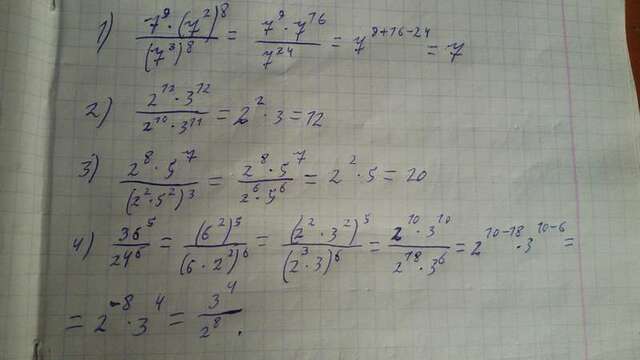 1) \frac{y^9 \cdot (y^2)^8}{(y^3)^8} = \frac{y^9 \cdot y^{16}}{y^{24}} = y^{9+16-24} = y
2) \frac{2^{12} \cdot 3^{12}}{2^{10} \cdot 3^{11}} = 2^2 \cdot 3 = 12
3) \frac{2^8 \cdot 5^7}{(2^2 \cdot 5^2)^3} = \frac{2^8 \cdot 5^7}{2^6 \cdot 5^6} = 2^2 \cdot 5 = 20
4) \frac{36^5}{24^6} = \frac{(6^2)^5}{(6 \cdot 2^2)^6} = \frac{(2^2 \cdot 3^2)^5}{(2^3 \cdot 3)^6} = \frac{2^{10} \cdot 3^{10}}{2^{18} \cdot 3^6} = 2^{10-18} \cdot 3^{10-6} =
= 2^{-8} \cdot 3^4 = \frac{3^4}{2^8}.